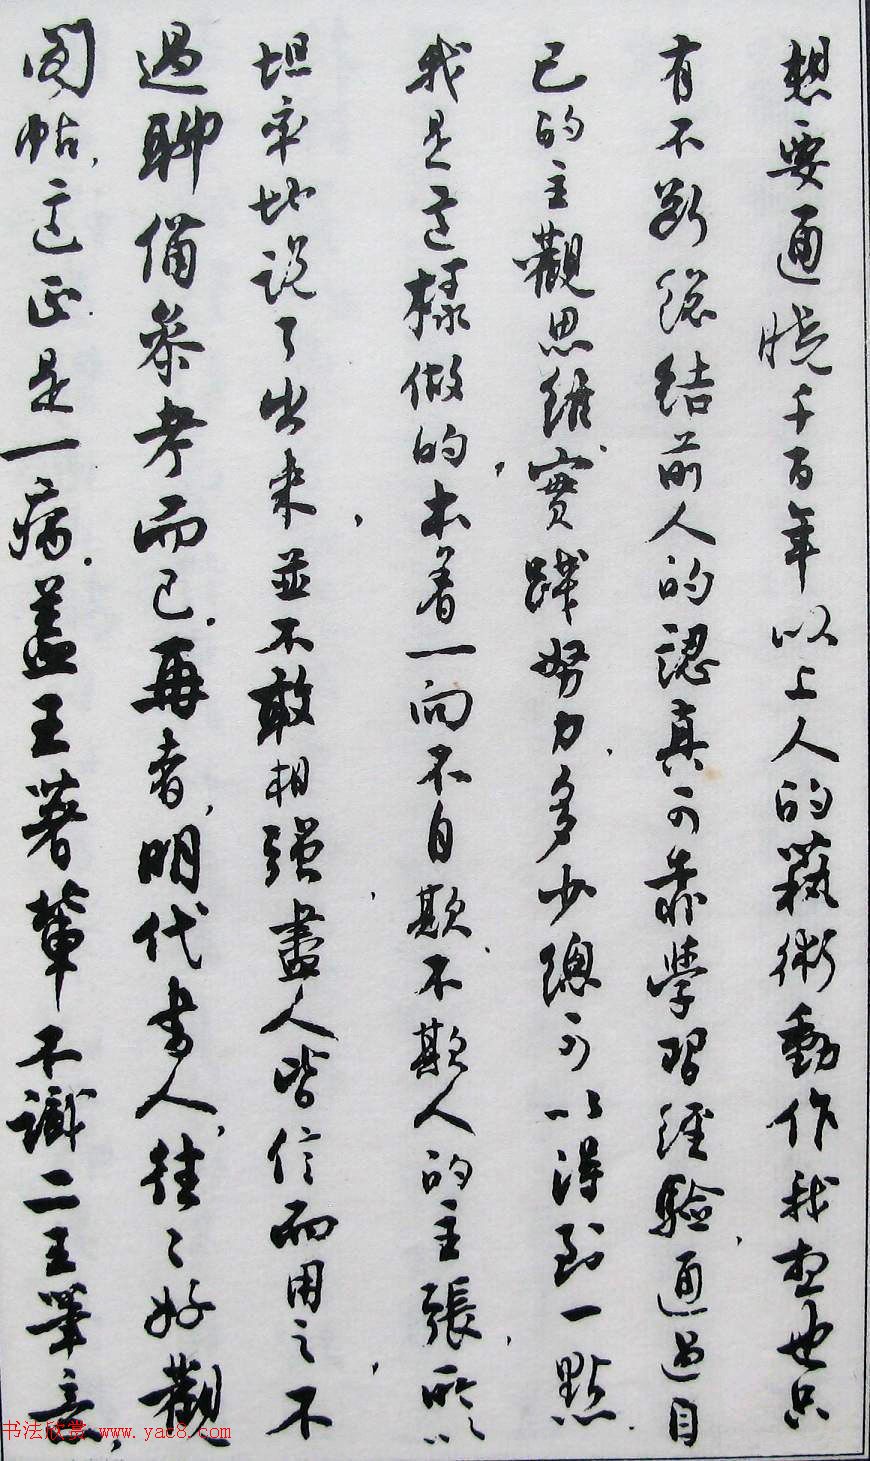 想要通曉千百年以上人的藝術動作我想也只
有不斷總結前人的認真可靠學習經驗，通過自
己的主觀思維，實踐努力，多少總可以得到一點
我是這樣做的，本着一向不自欺不欺人的主張，所以
坦率地說了出來，並不敢相强，盡人皆信而用之，不
過聊備參考而已。再者，明代書人，往〻好觀
閣帖，這正是一病。蓋王著輩不識二王筆意，
书法欣赏 www.yac8.com